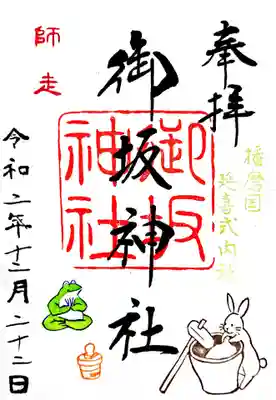 奉拝
播磨国
延喜式内社
御坂神社
御坂
神社
師走
令和二年十二月二十二日